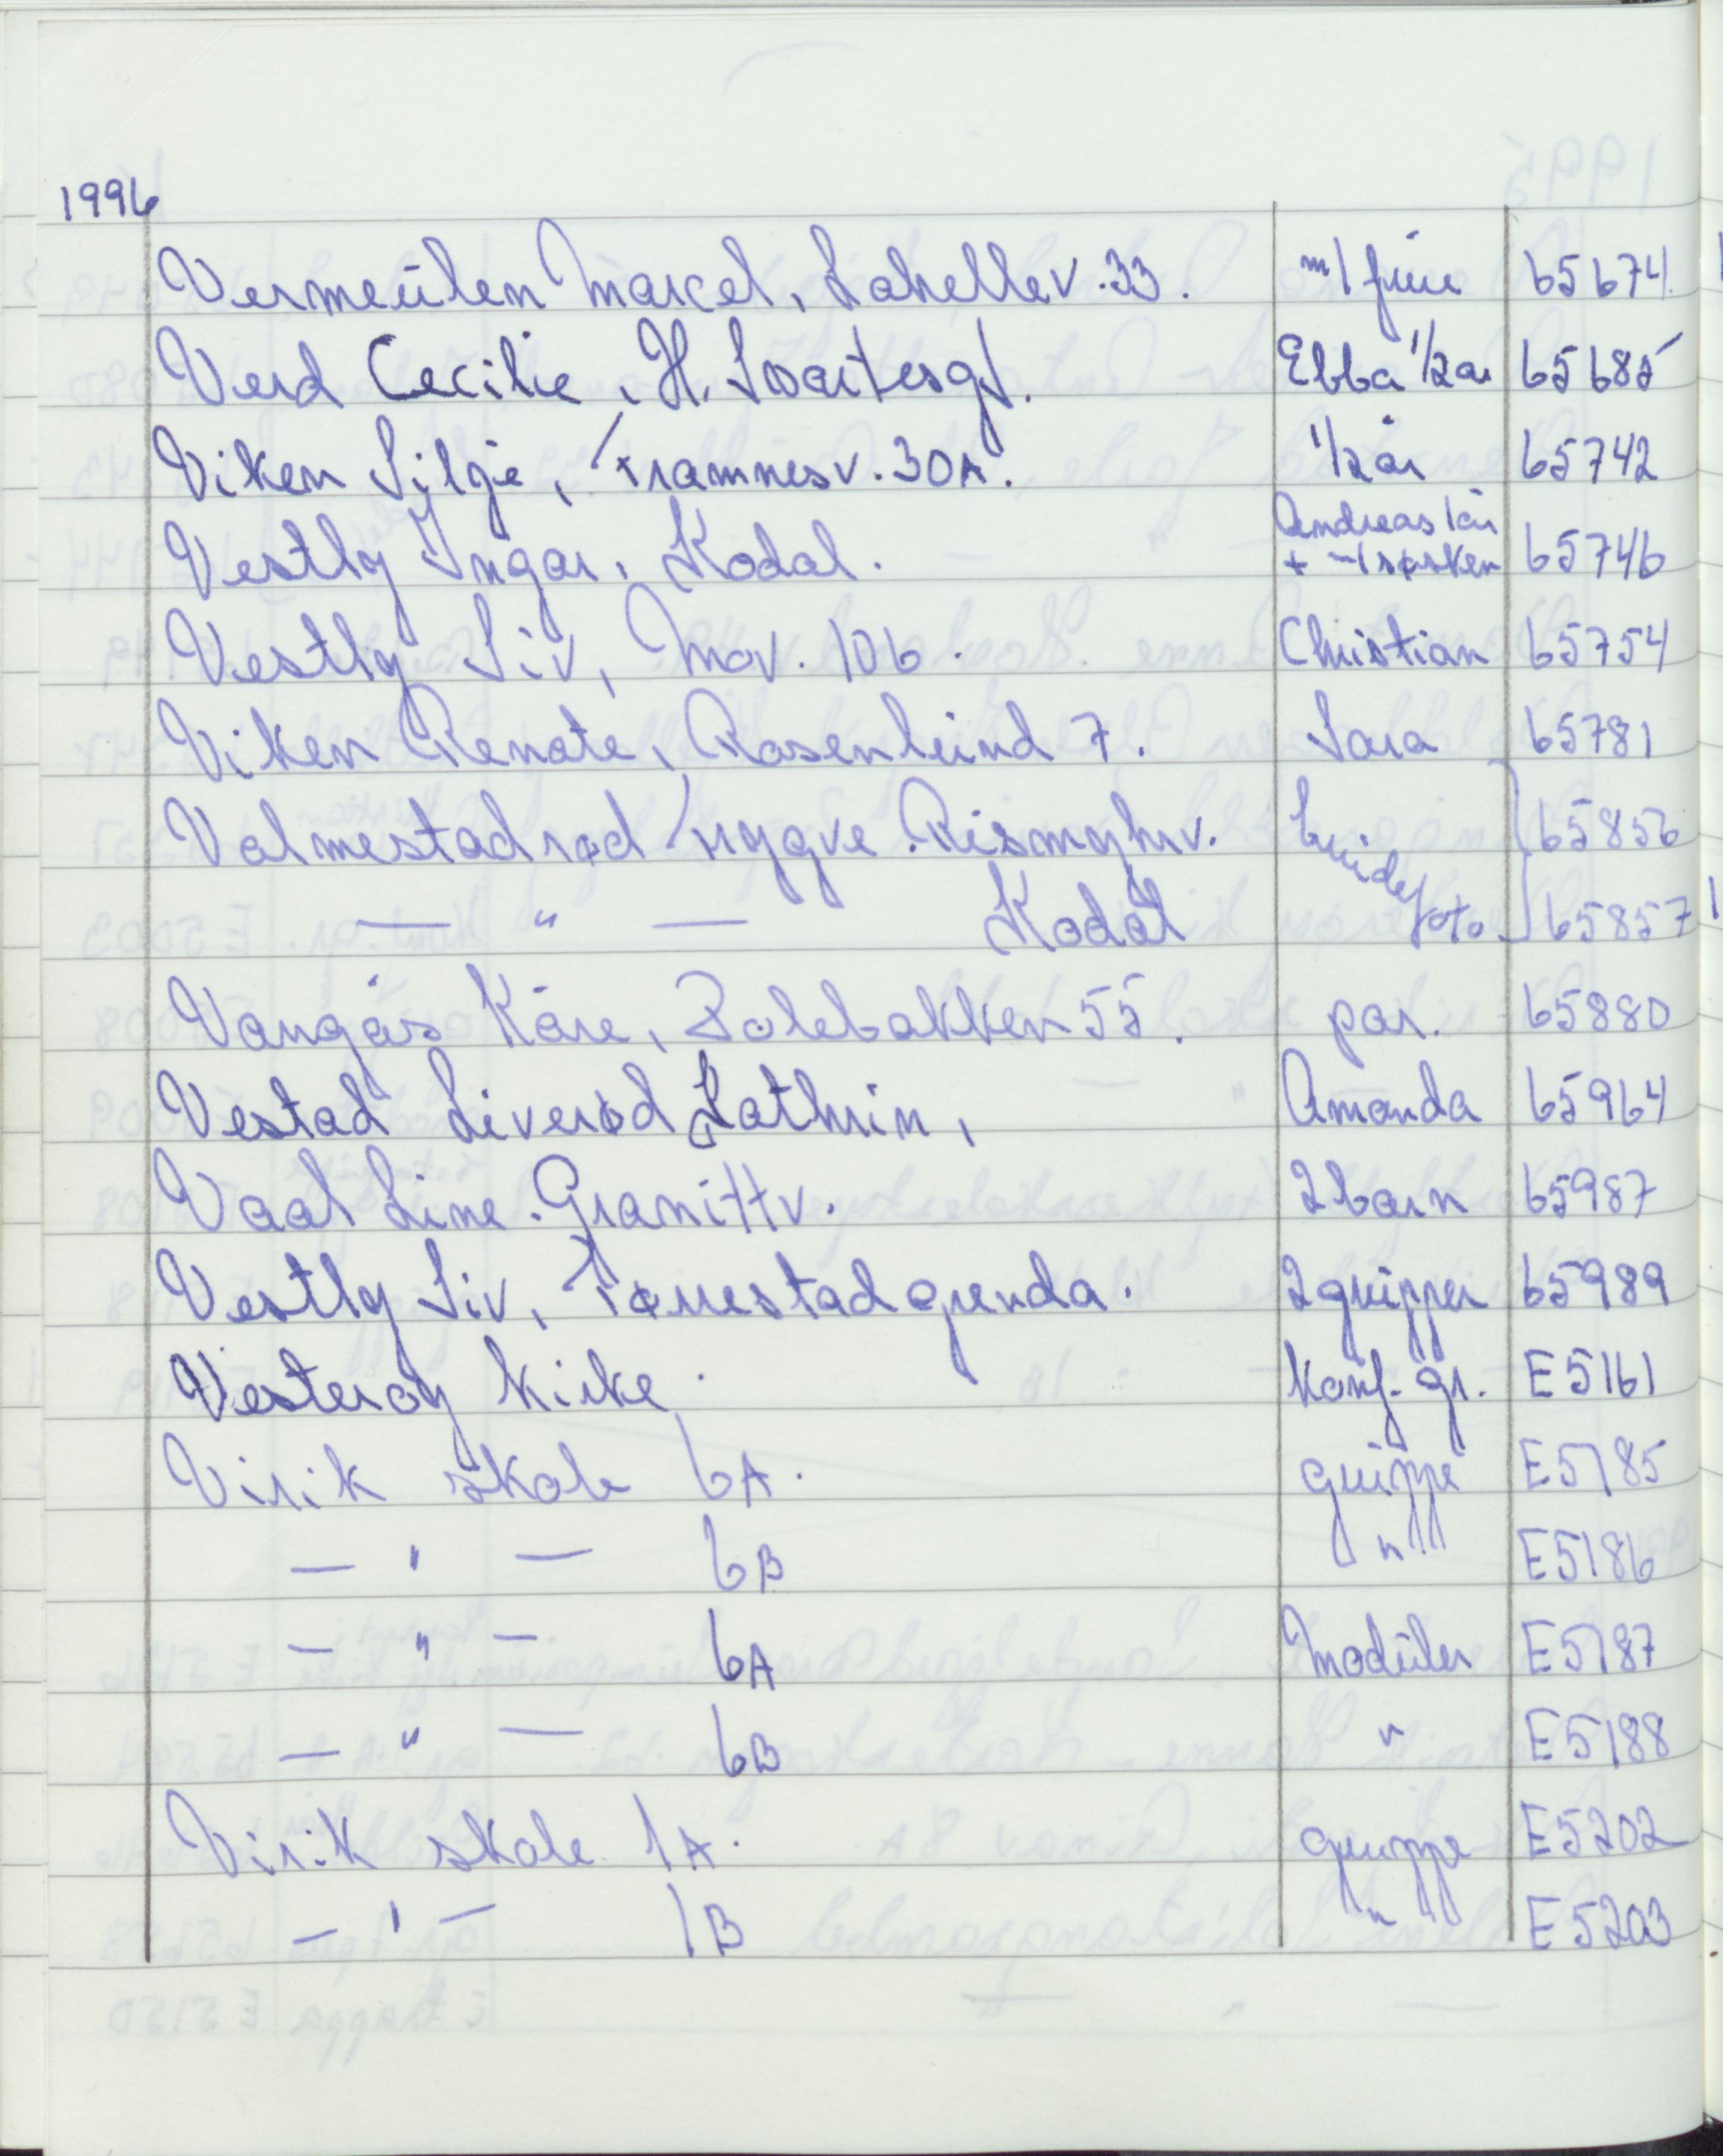 1996
Vermeulen Marcel, Lahellev. 33. m/ frue 65674
Verd Cecilie, H. Svartesgt. Ebba 1/2 år 65685
Viken Silje, Framnesv. 30A. 1/2 år 65742
Vestly Ingar, Kodal. Andreas 1 år + m/søsken 65746
Vestly Siv, Mov. 106. Christian 65754
Viken Renate, Rosenlund 7. Sara 65781
Valmestadrød Trygve. Rismyhrv. brude 65856
— " — Kodal foto 65857
Vangås Kåre, Solebakken 55. par. 65880
Vestad Liverød Kathrin, Amanda 65964
Vaal Line. Granittv. 2 barn 65987
Vestly Siv, Tørrestadgrenda. 2 grupper 65989
Vesterøy kirke. konf. gr. E5161
Virik skole 6A. gruppe E5185
— " — 6B " E5186
— " — 6A Moduler E5187
— " — 6B " E5188
Virik skole 1A. gruppe E5202
— " — 1B " E5203